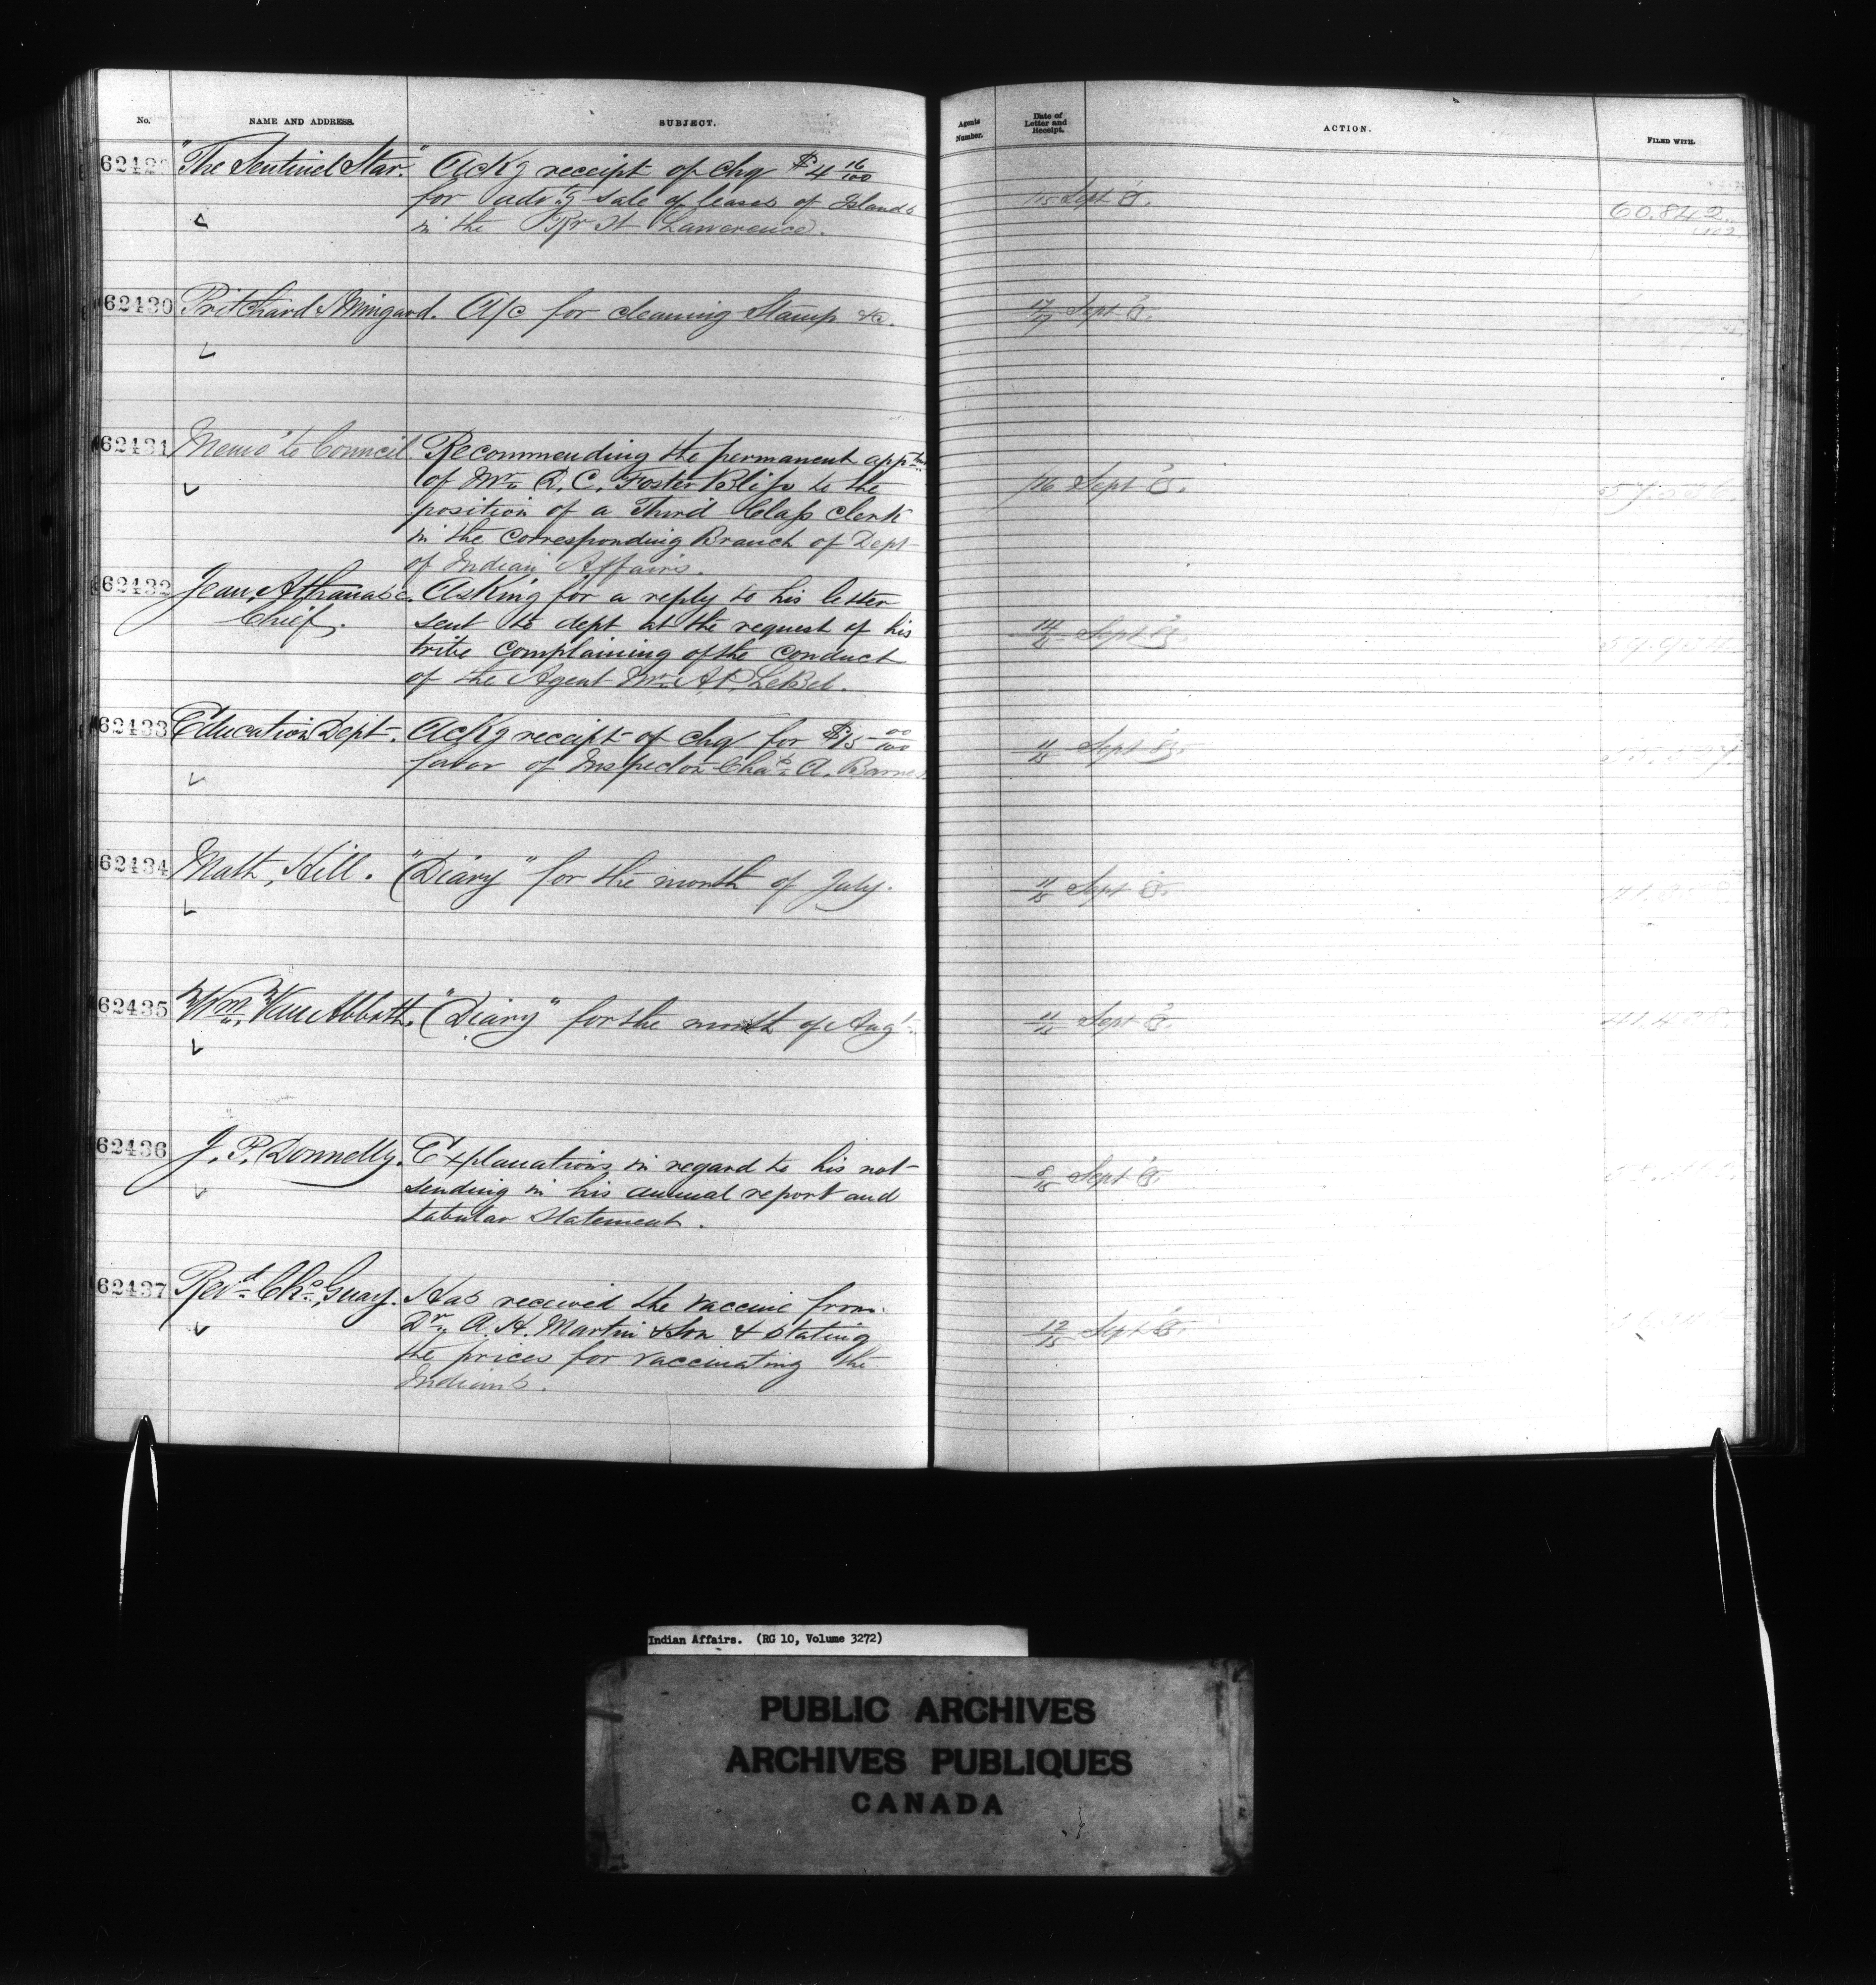 No. NAME AND ADDRESS. SUBJECT. Agents Number. Date of Letter and Receipt. ACTION. FILED WITH.
"The Sentinel Star." Ackg receipt of chq $4 16/100
for advtg sale of leases of Islands
in the Rr St Lawerence.
15 Sept
60.842
62430 Pritchard & Mingard. A/c for cleaning Stamp &c.
17/17 Sept
62431 Memo to Council. Recommending the permanent apptmt
of Mr. R. C. Foster Bliss to the
position of a Third Class Clerk
in the Corresponding Branch of Dept
of Indian Affairs.
/16 Sept
62432 Jean Athanase. Asking for a reply to his letter
Chief. sent to dept at the request of his
tribe complaining of the conduct
of the Agent Mr. A. P. LeBel.
14/15 Sept
62433 Education Dept. Ackg receipt of chq for $15 00/100
favor of Inspector Chas. A. Barnes
11/15 Sept 85
62434 Math. Hill. "Diary" for the month of July.
11/15 Sept
62435 Wm. Van Abbott. "Diary" for the month of Augt.
11/15 Sept
62436 J. P. Donnelly. Explanations in regard to his not
sending in his annual report and
tabular statement.
8/15 Sept
62437 Revd. Chs. Guay. Has received the vaccine from
Dr. A. H. Martin & Son & stating
the prices for vaccinating the
Indians.
12/15 Sept
Indian Affairs. (RG 10, Volume 3272)
PUBLIC ARCHIVES
ARCHIVES PUBLIQUES
CANADA